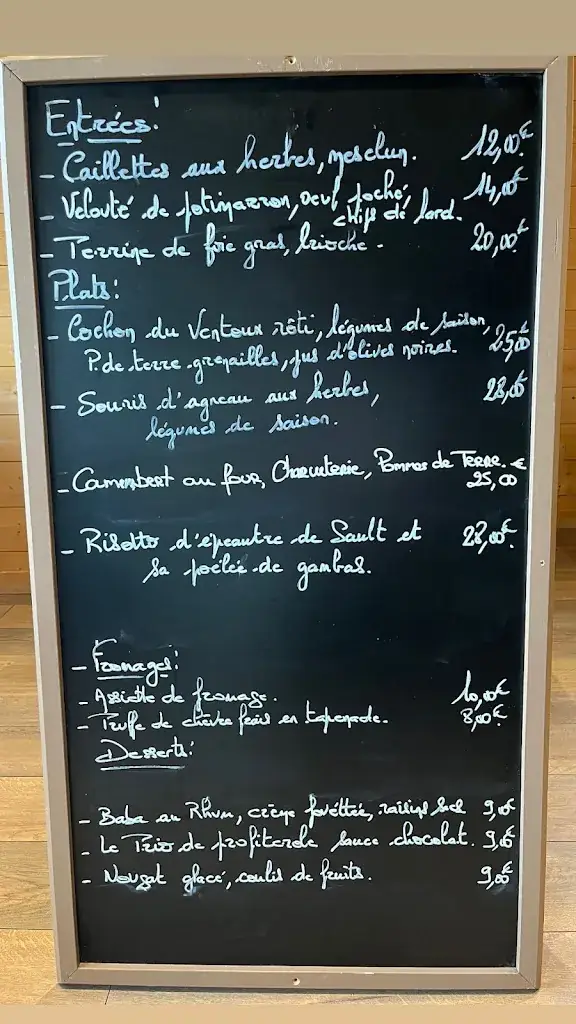 Entrées:
- Caillettes aux herbes, mesclun. 12,00€
- Velouté de potimarron, oeuf poché, 14,00€
chips de lard.
- Terrine de foie gras, brioche - 20,00€
Plats:
- Cochon du Ventoux rôti, légumes de saison,
P. de terre grenailles, jus d'olives noires. 25,00€
- Souris d'agneau aux herbes, 28,00€
légumes de saison.
- Camembert au four, Charcuterie, Pommes de Terre. €
25,00
- Risotto d'épeautre de Sault et 28,00€
sa poêlée de gambas.
- Fromages:
- Assiette de fromage. 10,00€
- Truffe de chèvre frais en Tapenade. 8,00€
Desserts:
- Baba au Rhum, crème fouettée, raisins secs 9,00€
- Le Trio de profiterole sauce chocolat. 9,00€
- Nougat glacé, coulis de fruits. 9,00€